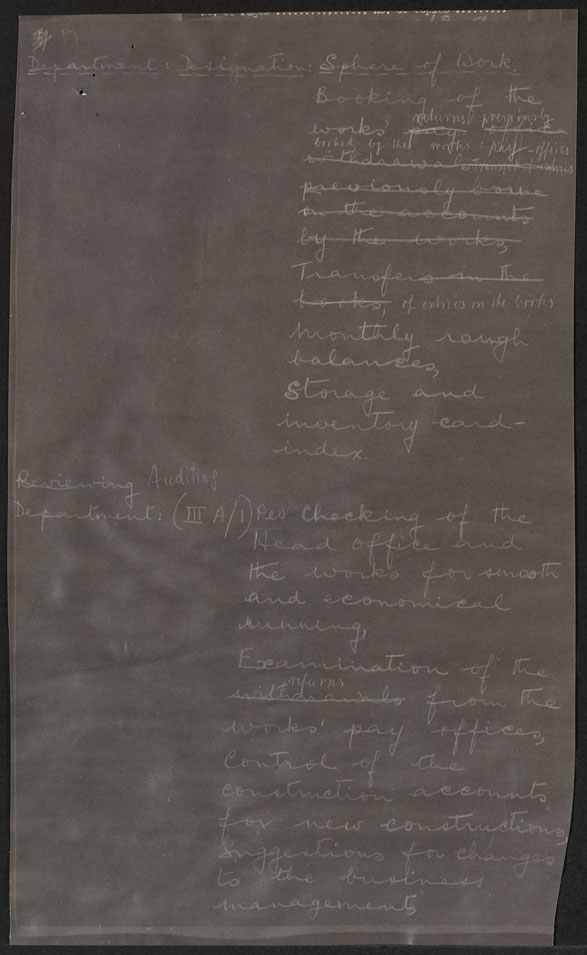 19
Department: Designation: Sphere of Work.
Booking of the
returns previously
works' pay office
booked by the works' pay-offices
withdrawals transferred entries
previously borne
on the accounts
by the works,
Transfers in the
books, of entries in the books
Monthly rough
balances,
Storage and
inventory card-
index.
Reviewing Auditing
Department: (III A/1) Rev Checking of the
Head office and
the works for smooth
and economical
running,
Examination of the
returns
withdrawals from the
works' pay offices,
Control of the
construction accounts
for new constructions,
Suggestions for changes
to the business
managements